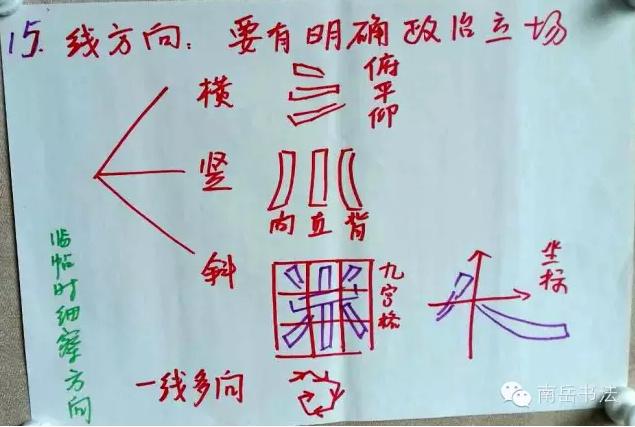 15. 线方向：要有明确政治立场
横
俯
平
仰
竖
向 直 背
斜
九宫格
坐标
一线多向
临帖时细察方向
南岳书法